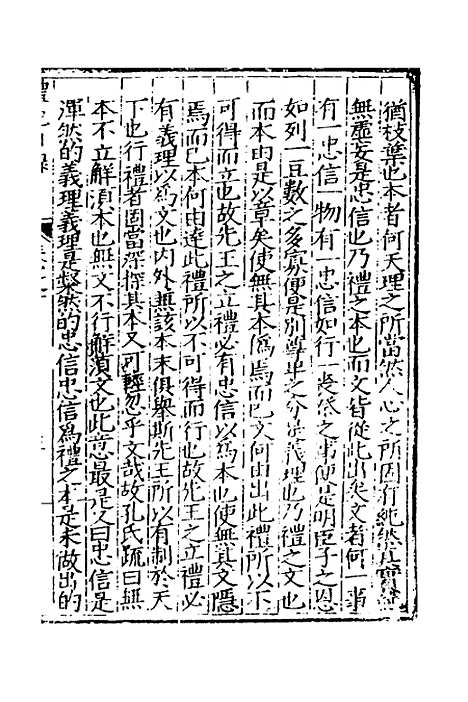 猶枝葉也本者何天理之所當然人心之所固有純然真實
無虛妄是忠信也乃禮之本也而文皆從此出矣文者何一事
有一忠信一物有一忠信如行一
如列一豆數之多寡便是別尊卑之分是義理也乃禮之文也
而本由是以章矣使無其本偽焉而已文何由出此禮所以不
可得而立也故先王之立禮必有忠信以為本也使無其文隱
焉而已本何由達此禮所以不可得而行也故先王之立禮必
有義理以為文也內外無該本末俱舉斯先王所以有制於天
下也行禮者固當深探其本又可輕忽乎文哉故孔氏疏曰無
本不立解須本也無文不行解須文也此意最是又曰忠信是
渾然的義理義理是粲然的忠信忠信為禮之本是未做出的